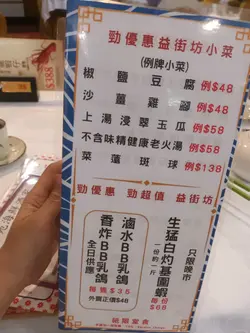 勁優惠益街坊小菜
(例牌小菜)
椒鹽豆腐 例$48
沙薑雞腳 例$48
上湯浸翠玉瓜 例$58
不含味精健康老火湯 例$58
菜薳斑球 例$138
勁優惠 勁超值 益街坊
只限晚市
生猛白灼基圍蝦
一份約一斤
限份
$68
滷水BB乳鴿
香炸BB乳鴿
全日供應
$35
外賣正價$48
$388